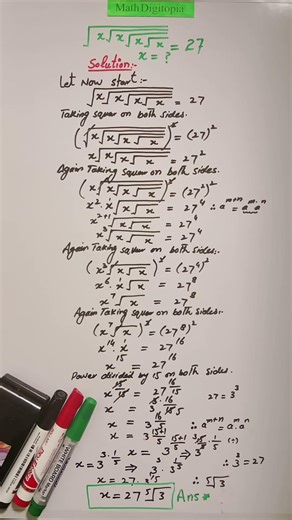 Math Digitopia
√x√x√x√x = 27
x = ?
Solution:-
Let Now start:-
√x√x√x√x = 27
Taking squar on both sides.
(√x√x√x√x)² = (27)²
x√x√x√x = 27²
Again Taking squar on both sides.
(x√x√x√x)² = (27²)²
x²·x¹√x√x = 27⁴ ∴ aᵐ⁺ⁿ = aᵐ·aⁿ
x²⁺¹√x√x = 27⁴
x³√x√x = 27⁴
Again Taking squar on both sides:-
(x³√x√x)² = (27⁴)²
x⁶·x¹√x = 27⁸
x⁷√x = 27⁸
Again Taking squar on both sides:-
(x⁷√x)² = (27⁸)²
x¹⁴·x¹ = 27¹⁶
x¹⁵ = 27¹⁶
Power divided by 15 on both sides.
x^15/15 = 27^16/15 27 = 3³
x = 3^3·16/15 5
x = 3^15+1/5 ∴ aᵐ⁺ⁿ = aᵐ·aⁿ
x = 3^15+1/5 ⇒ 3^15/5·1/5 (÷)
x = 3^3·1/5 ⇒ 3³·3^1/5 ∴ 3³ = 27
x = 27·3^1/5 ∴ ⁵√3
x = 27 ⁵√3 Ans
WHITE BOARD